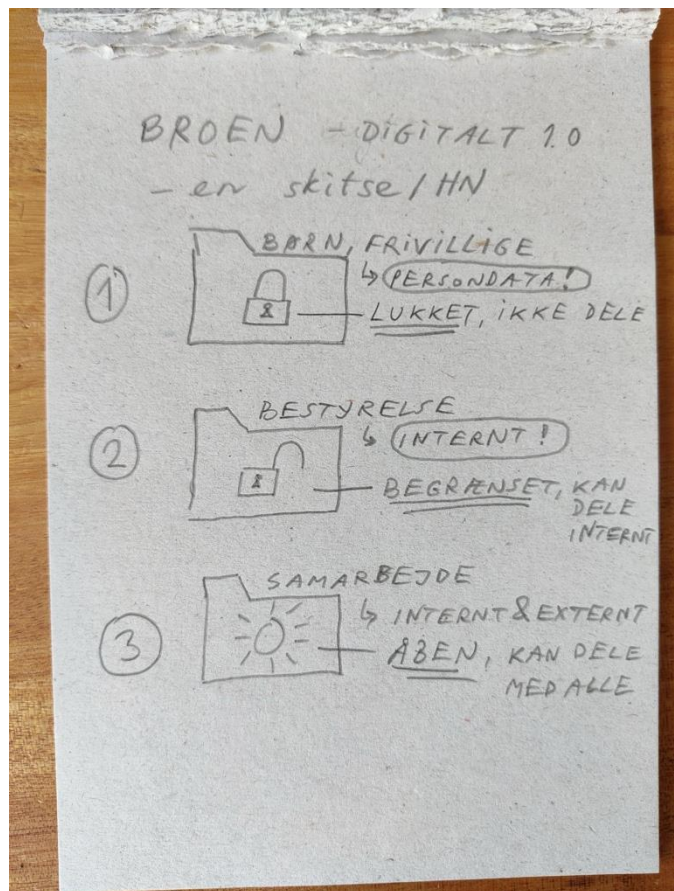 BROEN - DIGITALT 1.0
- en skitse/HN
1
BØRN, FRIVILLIGE
↳ PERSONDATA!
LUKKET, IKKE DELE
2
BESTYRELSE
↳ INTERNT!
BEGRÆNSET, KAN
DELE
INTERNT
3
SAMARBEJDE
↳ INTERNT & EXTERNT
ÅBEN, KAN DELE
MED ALLE